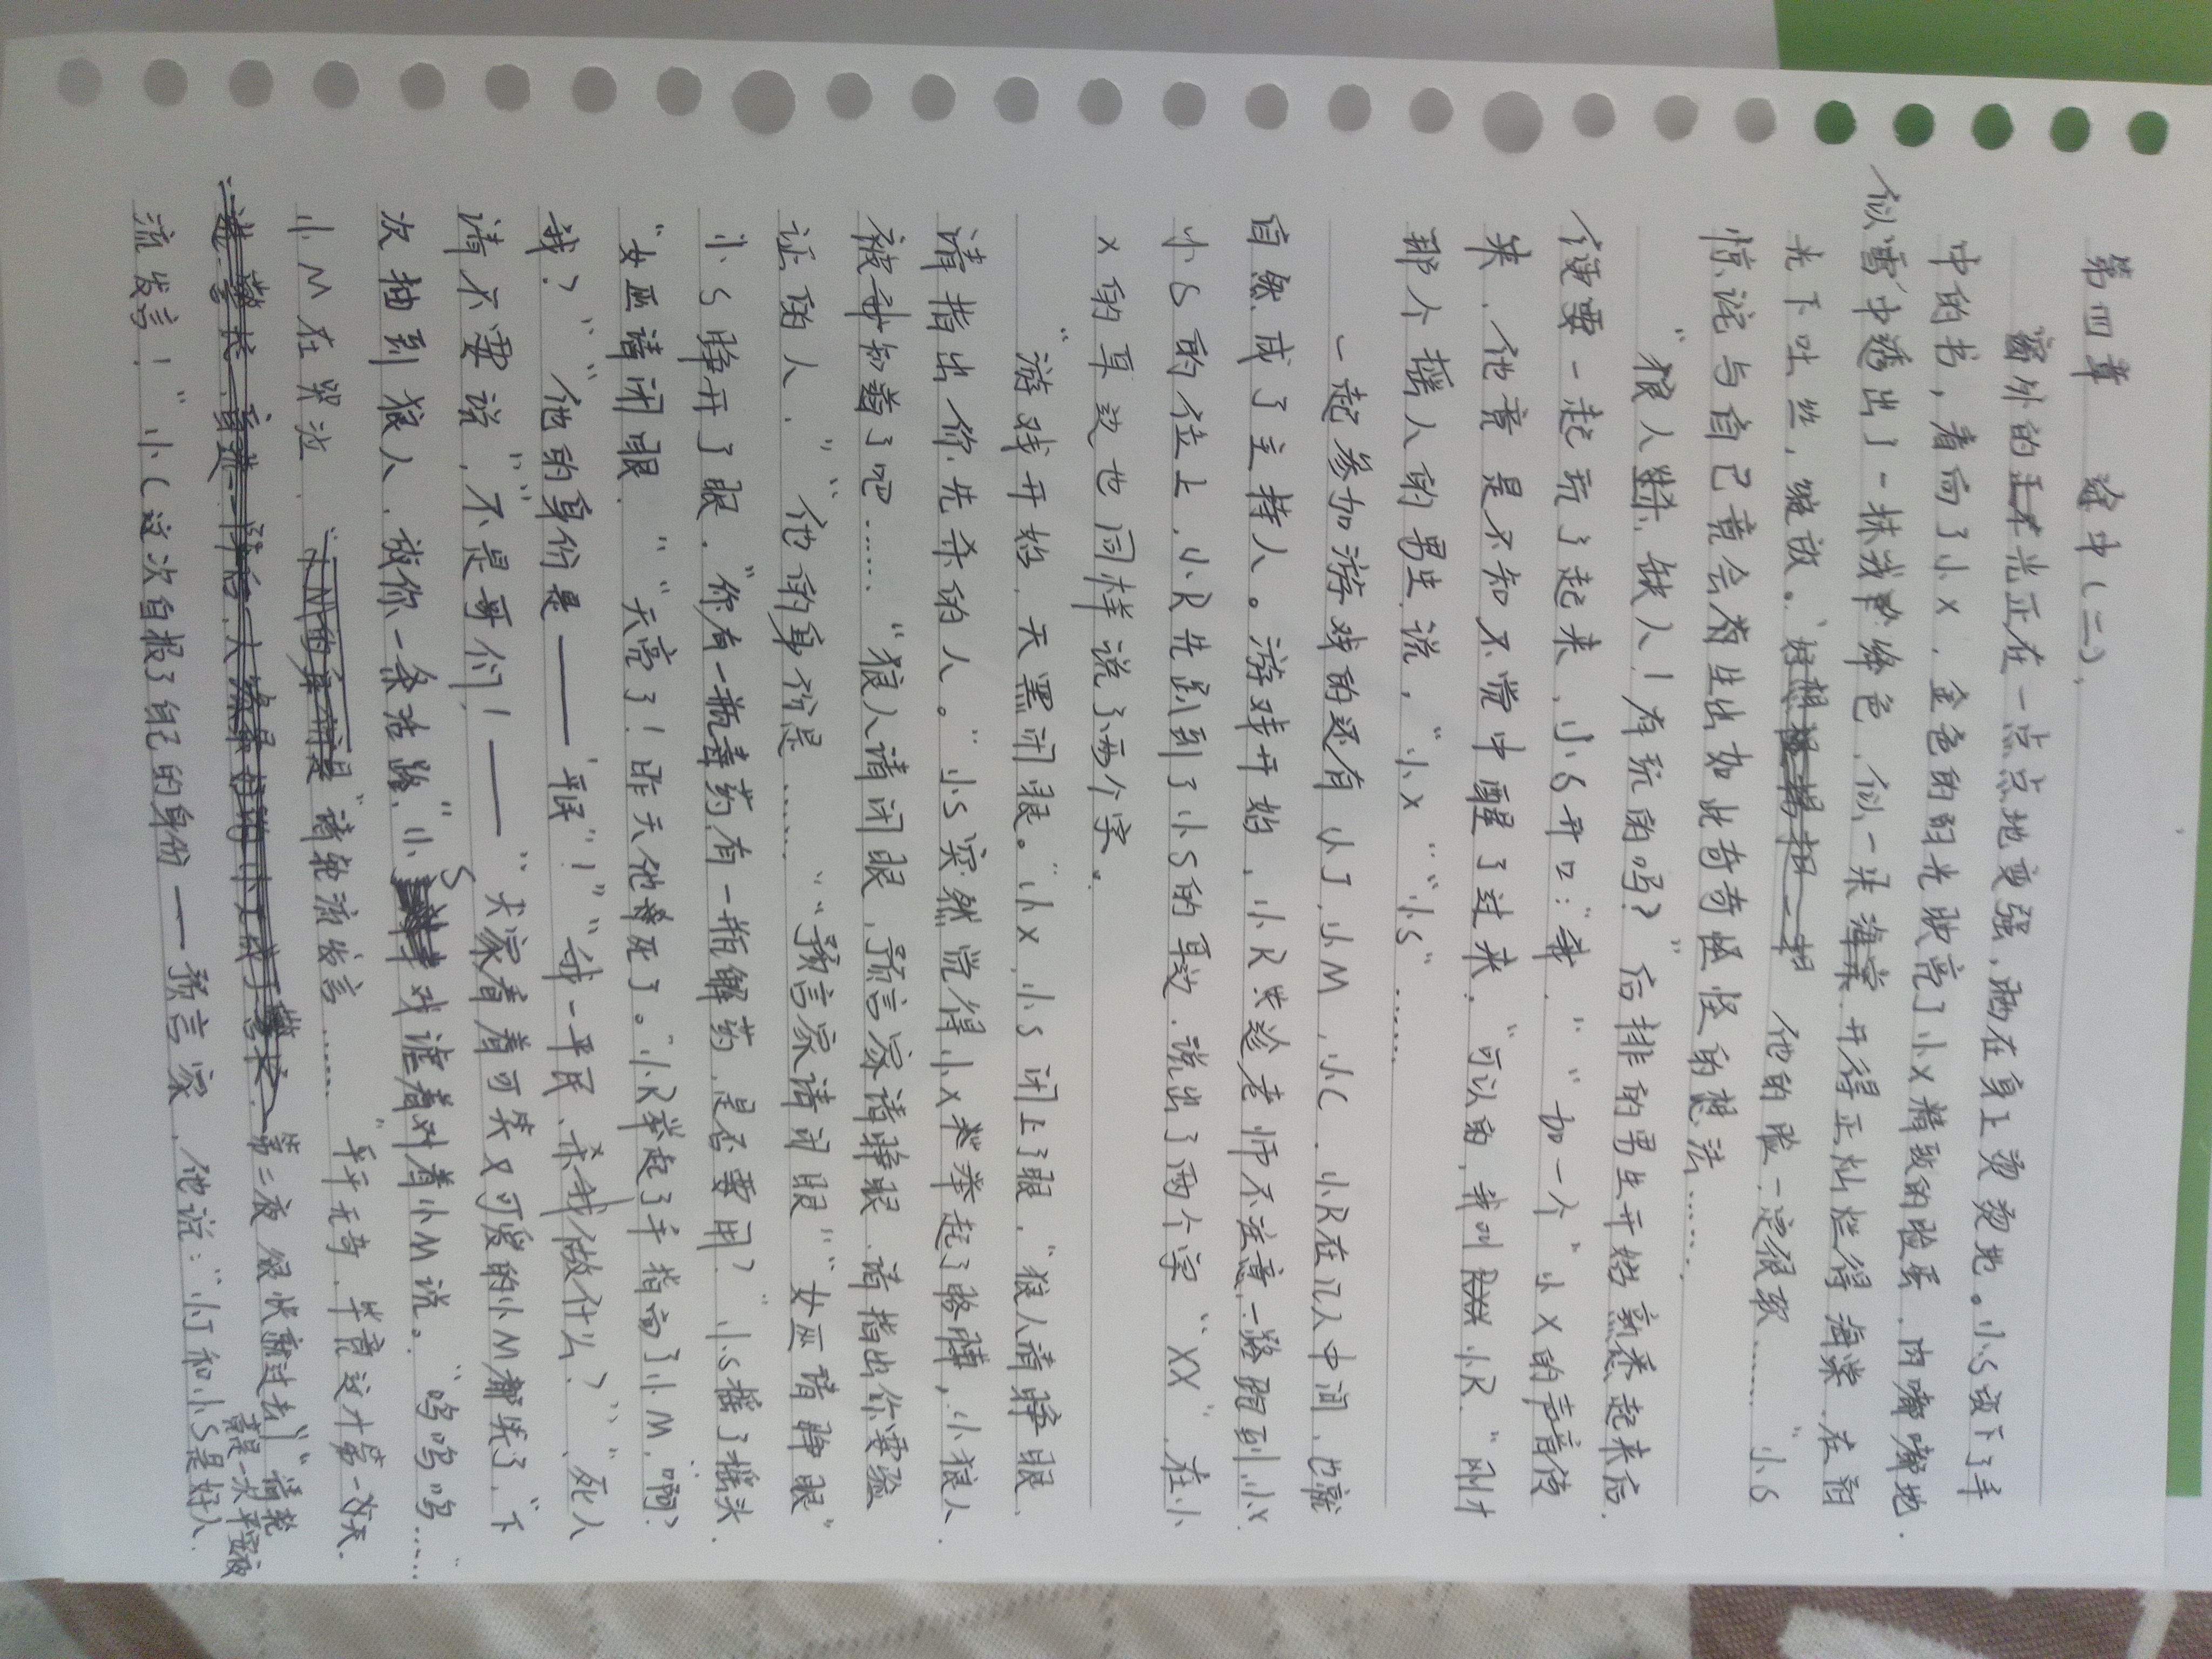 第四章 途中(二)
窗外的阳光正在一点点地变强，晒在身上烫烫地。小S放下了手
中的书，看向了小X，金色的阳光映亮了小X精致的脸蛋，肉嘟嘟地
似雪中透出了一抹绛色，似一朵海棠，开得正灿烂得海棠，在阳
光下吐丝，绽放。他的脸一定很软……"小S
惊诧与自己竟会有生出如此奇奇怪怪的想法……
"狼人杀，缺人！有玩的吗？"后排的男生开始熟悉起来后，
便要一起玩了起来，小S开口："我，""加一个"小X的声音传
来，他竟是不知不觉中醒了过来。"可以的，我叫小R，"刚才
那个摇人的男生说，"小X""小S"……
一起参加游戏的还有小J，小M，小C，小R在几人中间，也就
自然成了主持人。游戏开始，小R先趁老师不注意，一路跑到小X，
小S的位上，小R先趴到了小S的耳边，说出了两个字"XX"，在小
X的耳边也同样说了两个字。
"游戏开始，天黑闭眼。"小X，小S闭上了眼，"狼人请睁眼，
请指出你先杀的人。"小S突然觉得小X举起了胳膊，小狼人
被我知道了吧……"狼人请闭眼，预言家请睁眼，请指出你要验
证的人，""他的身份是……""预言家请闭眼""女巫请睁眼"
小S睁开了眼，"你有一瓶毒药，有一瓶解药，是否要用？"小S摇了摇头，
"女巫请闭眼，""天亮了！昨天他死了。"小R举起了手指向了小M，"啊？
我？""他的身份是——平民！""我一平民，杀我做什么？""死人
请不要说，""不是哥们！——""大家看着可笑又可爱的小M都笑了，"下
次抽到狼人，放你一条活路，"小S对着小M说。"呜呜呜……"
小M在哭泣，"请轮流发言……"平平无奇，毕竟这才第一天，
第二夜很快就过去，"请轮
竟是一次平安夜
流发言！"小C这次自报了自己的身份——预言家，他说："小J和小S是好人，